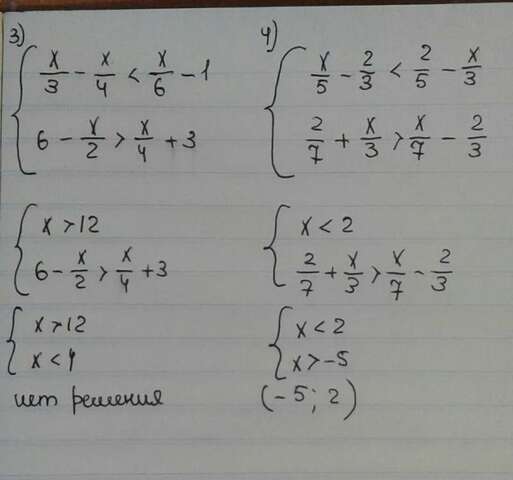 3)
x/3 - x/4 < x/6 - 1
6 - x/2 > x/4 + 3
x > 12
6 - x/2 > x/4 + 3
x > 12
x < 4
нет решения
4)
x/5 - 2/3 < 2/5 - x/3
2/7 + x/3 > x/7 - 2/3
x < 2
2/7 + x/3 > x/7 - 2/3
x < 2
x > -5
(-5; 2)